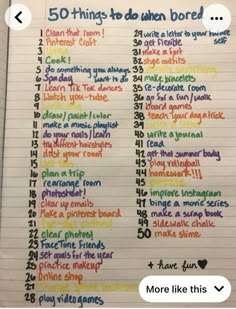 50 things to do when bored
1 Clean that room!
2 Pinterest Craft
4 Cook!
5 do something you always want to do
6 Spa day
7 Learn Tik Tok dances
8 Watch you-tube
10 draw/paint/color
11 make a music playlist
12 do your nails/learn
13 try different hairstyles
14 dust your room
16 plan a trip
17 rearrange room
18 photoshoot!
19 clear up emails
20 Make a pinterest board
22 clear photos!
23 FaceTime Friends
24 set goals for the year
25 practice makeup
26 Online shop
28 play video games
29 write a letter to your future self
30 get flexible
31 make a fort
32 style outfits
34 make bracelets
35 re-decorate room
36 go for a run/walk
37 board games
38 teach your dog a trick
40 write a journal
41 read
42 get that summer body
43 play volleyball
44 homework!!!
46 improve Instagram
47 binge a movie series
48 make a scrap book
49 sidewalk chalk
50 make slime
+ have fun
More like this